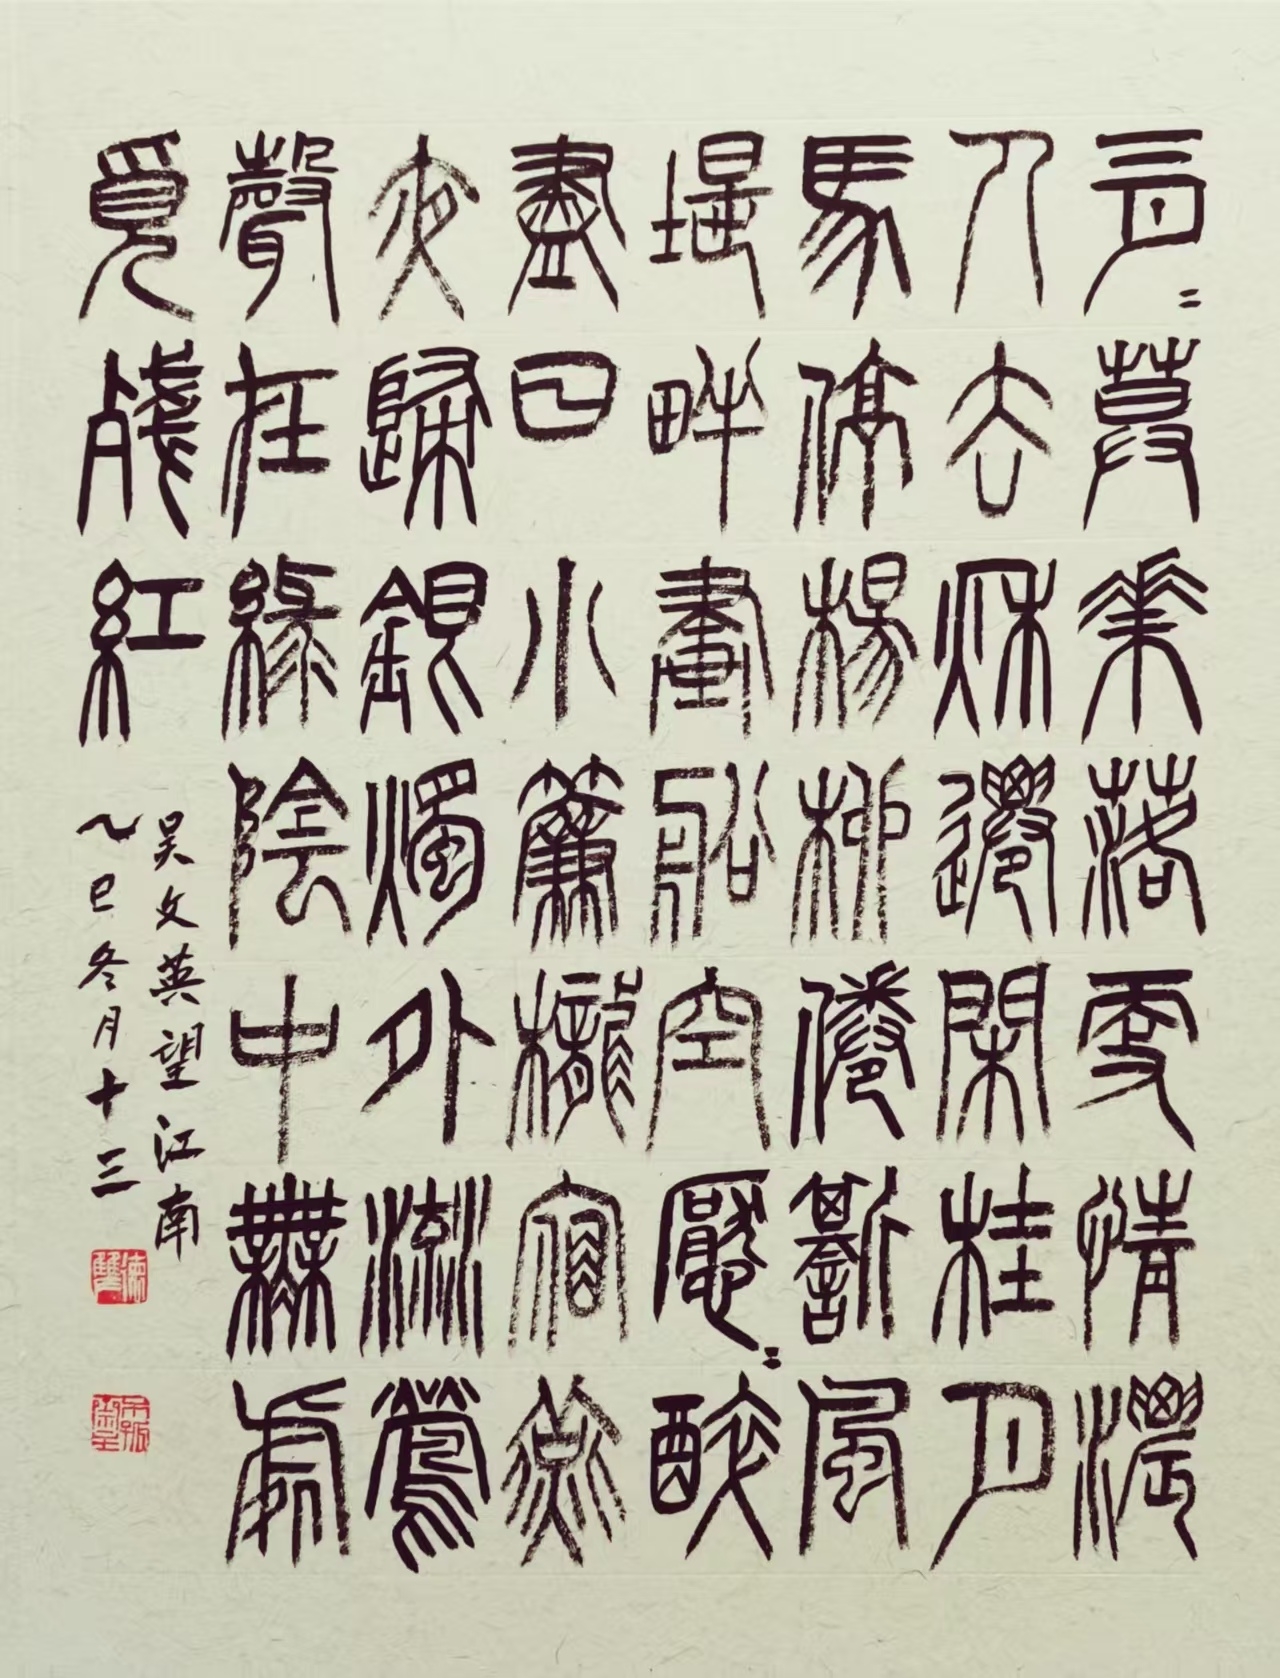 三月暮華落更情濃
人去秋遷閑桂月
馬停楊柳倦嘶風
堤畔畫船空懕〻醉
盡日小簾櫳宿燕
夜歸銀燭外流鶯
聲在緑陰中無處
覓殘紅
吴文英望江南
乙巳冬月十三